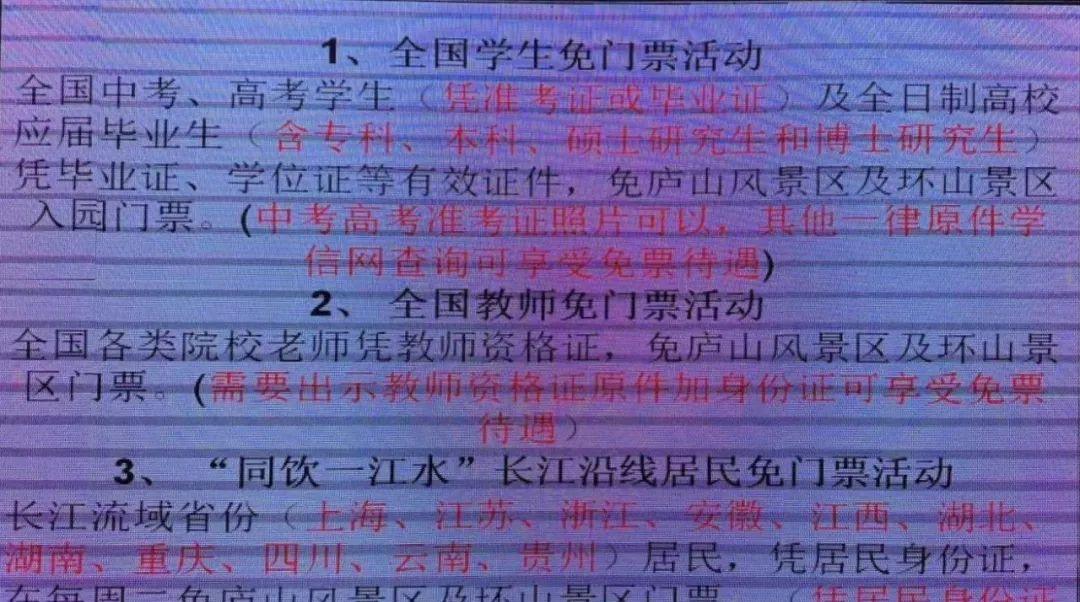 1、 全国学生免门票活动
全国中考、高考学生（凭准考证或毕业证）及全日制高校
应届毕业生（含专科、本科、硕士研究生和博士研究生）
凭毕业证、学位证等有效证件，免庐山风景区及环山景区
入园门票。(中考高考准考证照片可以，其他一律原件学
信网查询可享受免票待遇)
2、 全国教师免门票活动
全国各类院校老师凭教师资格证，免庐山风景区及环山景
区门票。(需要出示教师资格证原件加身份证可享受免票
待遇）
3、 “同饮一江水”长江沿线居民免门票活动
长江流域省份（上海、江苏、浙江、安徽、江西、湖北、
湖南、重庆、四川、云南、贵州）居民，凭居民身份证，
在每周二免庐山风景区及环山景区门票。（凭居民身份证